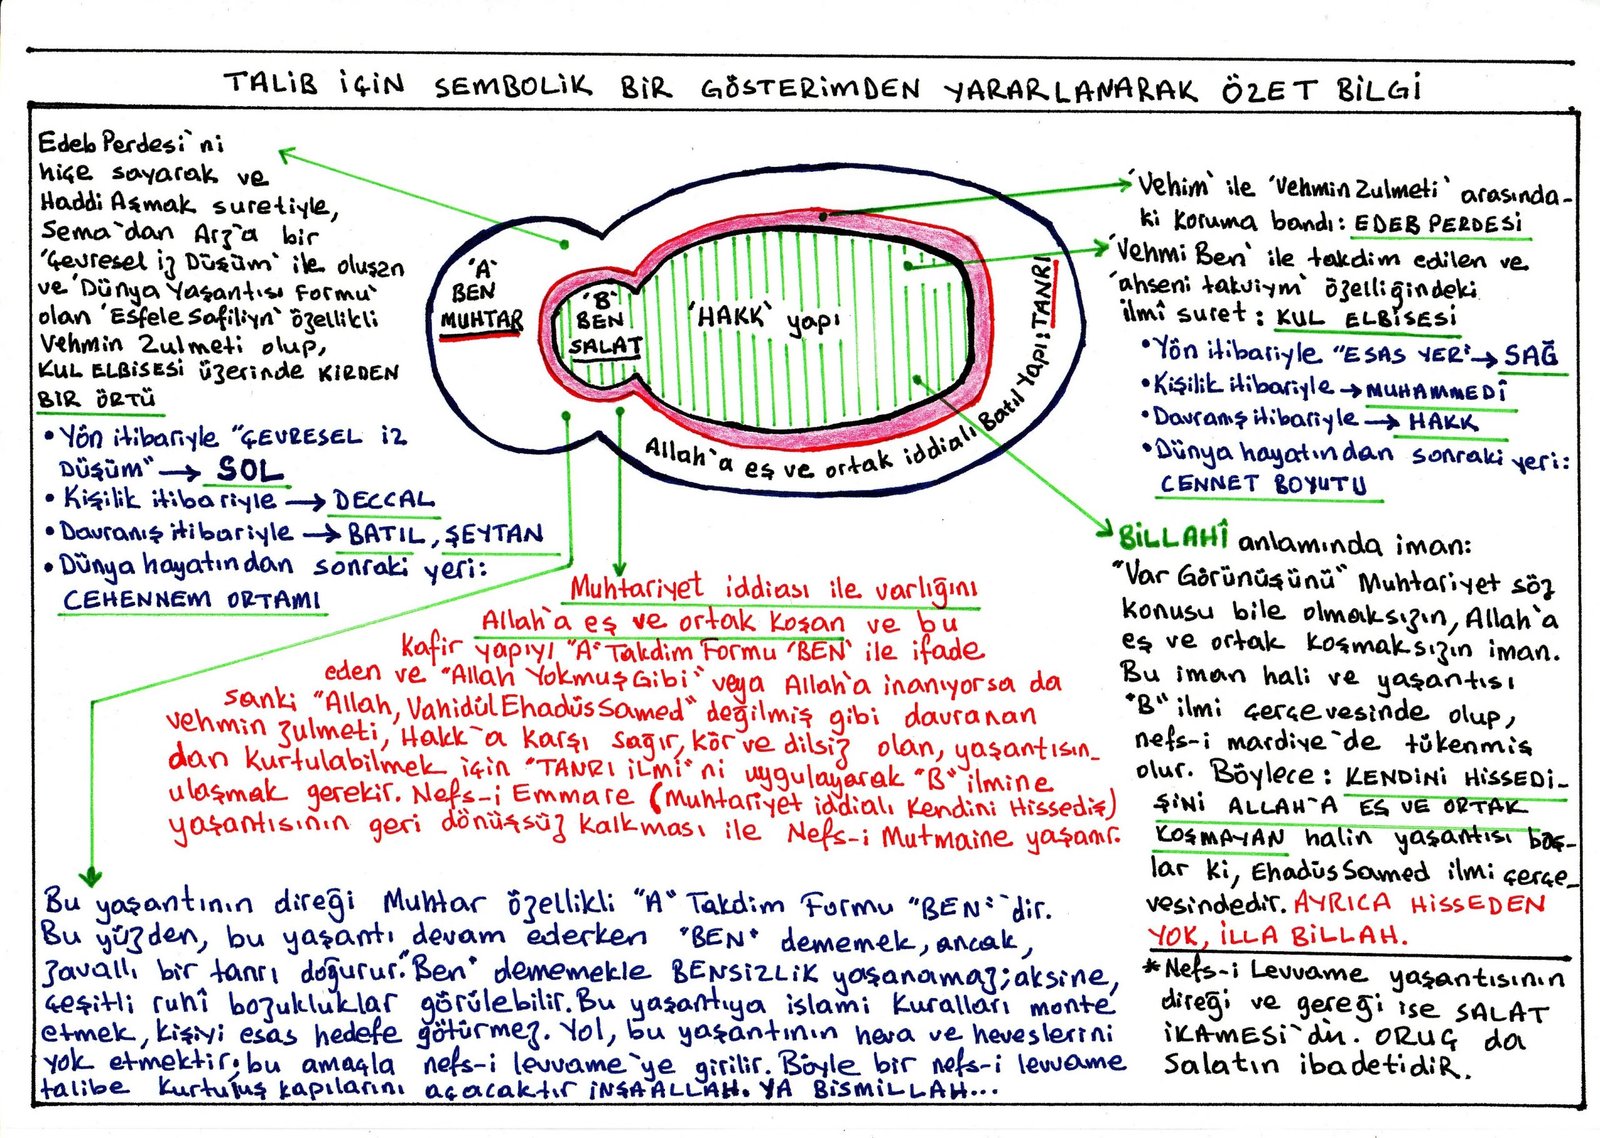 TALİB İÇİN SEMBOLİK BİR GÖSTERİMDEN YARARLANARAK ÖZET BİLGİ
Edeb Perdesi`ni
hiçe sayarak ve
Haddi Aşmak suretiyle,
Sema`dan Arz`a bir
'Çevresel İz Düşüm' ile oluşan
ve 'Dünya Yaşantısı Formu'
olan 'Esfele Safiliyn' özellikli
Vehmin Zulmeti olup,
KUL ELBİSESİ üzerinde KİRDEN
BİR ÖRTÜ
• Yön itibariyle "ÇEVRESEL İZ
DÜŞÜM" → SOL
• Kişilik itibariyle → DECCAL
• Davranış itibariyle → BATIL, ŞEYTAN
• Dünya hayatından sonraki yeri:
CEHENNEM ORTAMI
'A'
BEN
MUHTAR
'B'
BEN
SALAT
'HAKK' yapı
Allah`a eş ve ortak iddialı Batıl Yapı: TANRI
'Vehim' ile 'Vehmin Zulmeti' arasında-
ki koruma bandı: EDEB PERDESİ
'Vehmi Ben' ile takdim edilen ve
'ahseni takviym' özelliğindeki
ilmî suret: KUL ELBİSESİ
• Yön itibariyle "ESAS YER" → SAĞ
• Kişilik itibariyle → MUHAMMEDÎ
• Davranış itibariyle → HAKK
• Dünya hayatından sonraki yeri:
CENNET BOYUTU
BİLLAHÎ anlamında iman:
"Var Görünüşünü" Muhtariyet söz
konusu bile olmaksızın, Allah`a
eş ve ortak koşmaksızın iman.
Bu iman hali ve yaşantısı
"B" ilmi çerçevesinde olup,
nefs-i mardiye`de tükenmiş
olur. Böylece: KENDİNİ HİSSEDİ-
ŞİNİ ALLAH`A EŞ VE ORTAK
KOŞMAYAN halin yaşantısı baş-
lar ki, EhadüsSamed ilmi çerçe-
vesindedir. AYRICA HİSSEDEN
YOK, İLLA BİLLAH.
* Nefs-i Levvame yaşantısının
direği ve gereği ise SALAT
İKAMESİ`dir. ORUÇ da
Salatın ibadetidir.
Muhtariyet iddiası ile varlığını
Allah`a eş ve ortak koşan ve bu
kafir yapıyı "A" Takdim Formu 'BEN' ile ifade
eden ve "Allah Yokmuş Gibi" veya Allah`a inanıyorsa da
sanki "Allah, VahidülEhadüsSamed" değilmiş gibi davranan
vehmin zulmeti, Hakk`a karşı sağır, kör ve dilsiz olan, yaşantısın-
dan kurtulabilmek için "TANRI İLMİ"ni uygulayarak "B" ilmine
ulaşmak gerekir. Nefs-i Emmare (Muhtariyet iddialı Kendini Hissediş)
yaşantısının geri dönüşsüz kalkması ile Nefs-i Mutmaine yaşanır.
Bu yaşantının direği Muhtar özellikli "A" Takdim Formu "BEN"`dir.
Bu yüzden, bu yaşantı devam ederken "BEN" dememek, ancak,
zavallı bir tanrı doğurur. "Ben" dememekle BENSİZLİK yaşanamaz; aksine,
çeşitli ruhî bozukluklar görülebilir. Bu yaşantıya islami kuralları monte
etmek, kişiyi esas hedefe götürmez. Yol, bu yaşantının heva ve heveslerini
yok etmektir; bu amaçla nefs-i levvame`ye girilir. Böyle bir nefs-i levvame
talibe kurtuluş kapılarını açacaktır İNŞAALLAH. YA BİSMİLLAH...